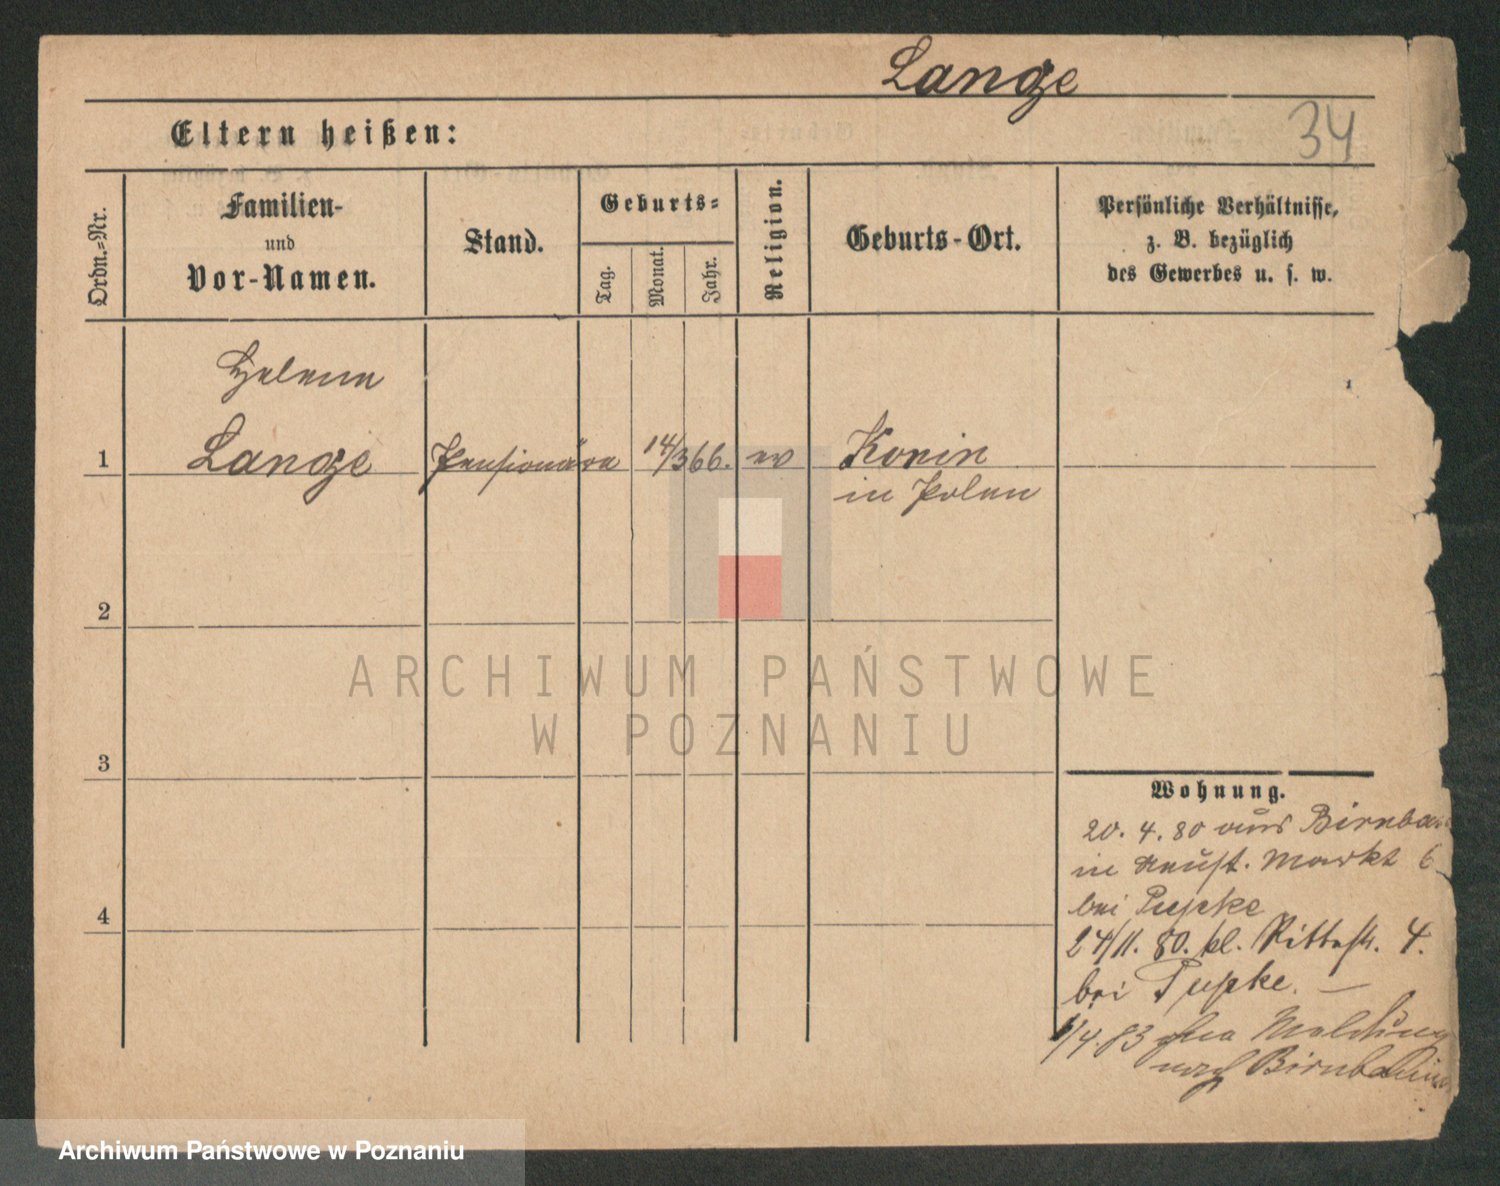 Lange
34
Eltern heißen:
Ordn.=Nr.
Familien-
und
Vor-Namen.
Stand.
Geburts=
Tag.
Monat.
Jahr.
Religion.
Geburts-Ort.
Persönliche Verhältnisse,
z. B. bezüglich
des Gewerbes u. s. w.
Helene
1 Lange Pensionärin 14/3 66. ev Konin
in Polen
2
3
4
ARCHIWUM PAŃSTWOWE
W POZNANIU
Wohnung.
20. 4. 80 aus Birnba
in Neust. Markt 6
bei
24/11. 80. kl. Ritterstr. 4.
bei
1/4. 83 ohne Meldung
nach Birnbaum
Archiwum Państwowe w Poznaniu